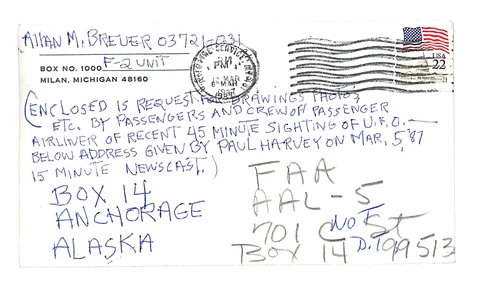 Allan M. Breuer 03721-031
F-2 UNIT
BOX NO. 1000
MILAN, MICHIGAN 48160
PM
MAR
1987
USA
22
(ENCLOSED IS REQUEST FOR DRAWINGS, PHOTOS,
ETC. BY PASSENGERS AND CREW OF PASSENGER
AIRLINER OF RECENT 45 MINUTE SIGHTING OF U.F.O. —
BELOW ADDRESS GIVEN BY PAUL HARVEY ON MAR. 5, '87
15 MINUTE NEWSCAST.)
BOX 14
ANCHORAGE
ALASKA
FAA
AAL-5
701 C St
BOX 14 99513